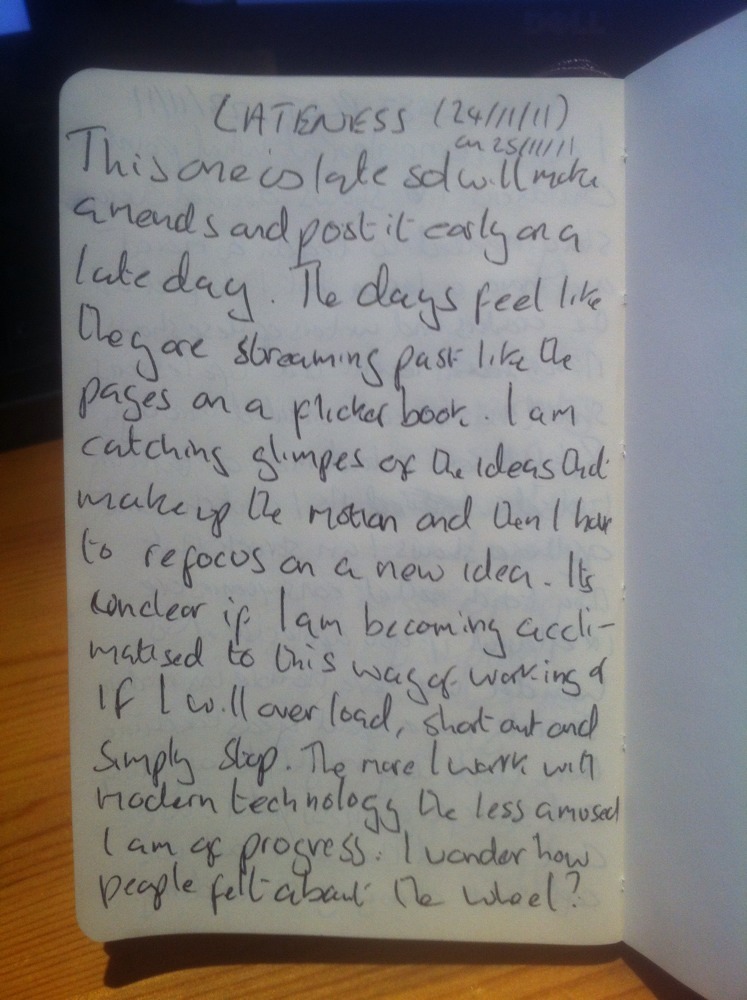 LATENESS (24/11/11)
on 25/11/11
This one is late so I will make
amends and post it early on a
late day. The days feel like
they are streaming past like the
pages on a flicker book. I am
catching glimpses of the ideas that
make up the motion and then I have
to refocus on a new idea. Its
unclear if I am becoming accli-
matised to this way of working or
if I will over load, short out and
simply stop. The more I work with
modern technology the less amused
I am of progress. I wonder how
people felt about the wheel?
DELL